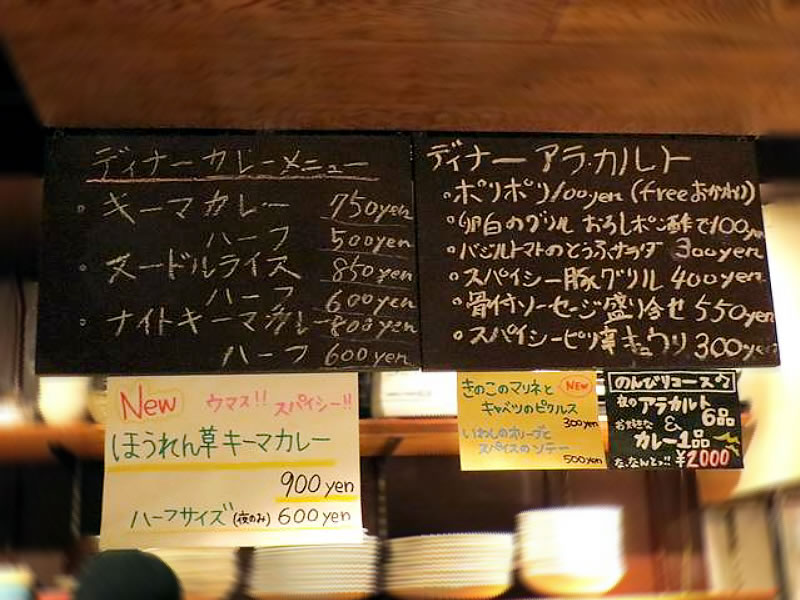 ディナーカレーメニュー
・キーマカレー 750yen
ハーフ 500yen
・ヌードルライス 850yen
ハーフ 600yen
・ナイトキーマカレー 800yen
ハーフ 600yen
ディナーアラカルト
・ポリポリ100yen(freeおかわり)
・卵白のグリル おろしポン酢で100yen
・バジルトマトのとうふサラダ 300yen
・スパイシー豚グリル 400yen
・骨付ソーセージ盛り合せ 550yen
・スパイシーピリ辛キュウリ 300yen
New ウマス!! スパイシー!!
ほうれん草キーマカレー
900yen
ハーフサイズ(夜のみ) 600yen
きのこのマリネと NEW
キャベツのピクルス
300yen
いわしのオリーブと
スパイスのソテー
500yen
のんびりコース♪
夜のアラカルト
6品
お好きな &
カレー1品
な、なんとっ!! ¥2000